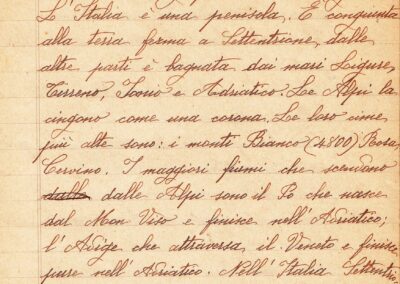 L'Italia è una penisola. È congiunta
alla terra ferma a Settentrione, dalle
altre parti è bagnata dai mari Ligure,
Tirreno, Ionio e Adriatico. Le Alpi la
cingono come una corona. Le loro cime
più alte sono: i monti Bianco (4800) Rosa,
Cervino. I maggiori fiumi che scendono
dalle dalle Alpi sono il Po che nasce
dal Mon Viso e finisce nell'Adriatico;
l'Adige che attraversa il Veneto e finisce
pure nell'Adriatico. Nell'Italia Settentrio-